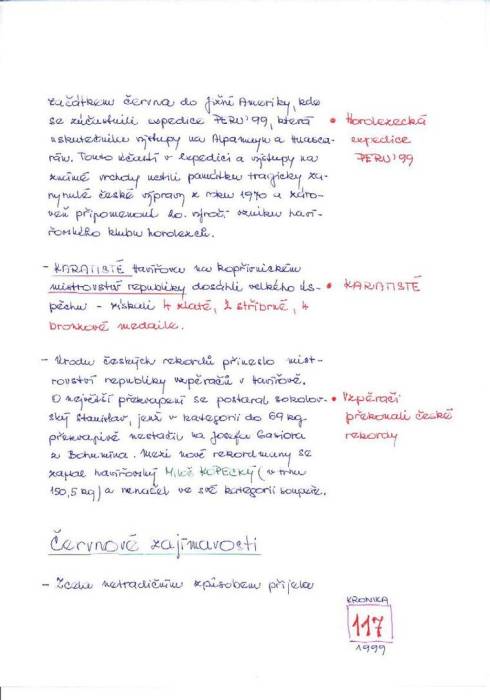 začátkem června do Jižní Ameriky, kde
se zúčastnili expedice PERU'99, která
uskutečnila výstupy na Alpamayo a Huasca-
rán. Touto účastí v expedici a výstupy na
známé vrchdy uctili památku tragicky za-
hynulé české výpravy z roku 1970 a záro-
veň připomenout 20. výročí vzniku haví-
řovského klubu horolezců.
• Horolezecká
expedice
PERU'99
- KARATISTÉ Havířova na kopřivnickém
mistrovství republiky dosáhli velkého ús-
pěchu - získali 4 zlaté, 2 stříbrné, 4
bronzové medaile.
• KARATISTÉ
- Úrodu českých rekordů přineslo mist-
rovství republiky vzpěračů v Havířově.
O největší překvapení se postaral sokolov-
ský Stanislav, jenž v kategorii do 69 kg
překvapivě nestačil na Josefa Gaviora
z Bohumína. Mezi nové rekordmany se
zapsal havířovský Miloš KOPECKÝ (v trhu
150,5 kg) a nenašel ve své kategorii soupeře.
• Vzpěrači
překonali české
rekordy
Červnové zajímavosti
- Zcela netradičním způsobem přijela
KRONIKA
117
1999